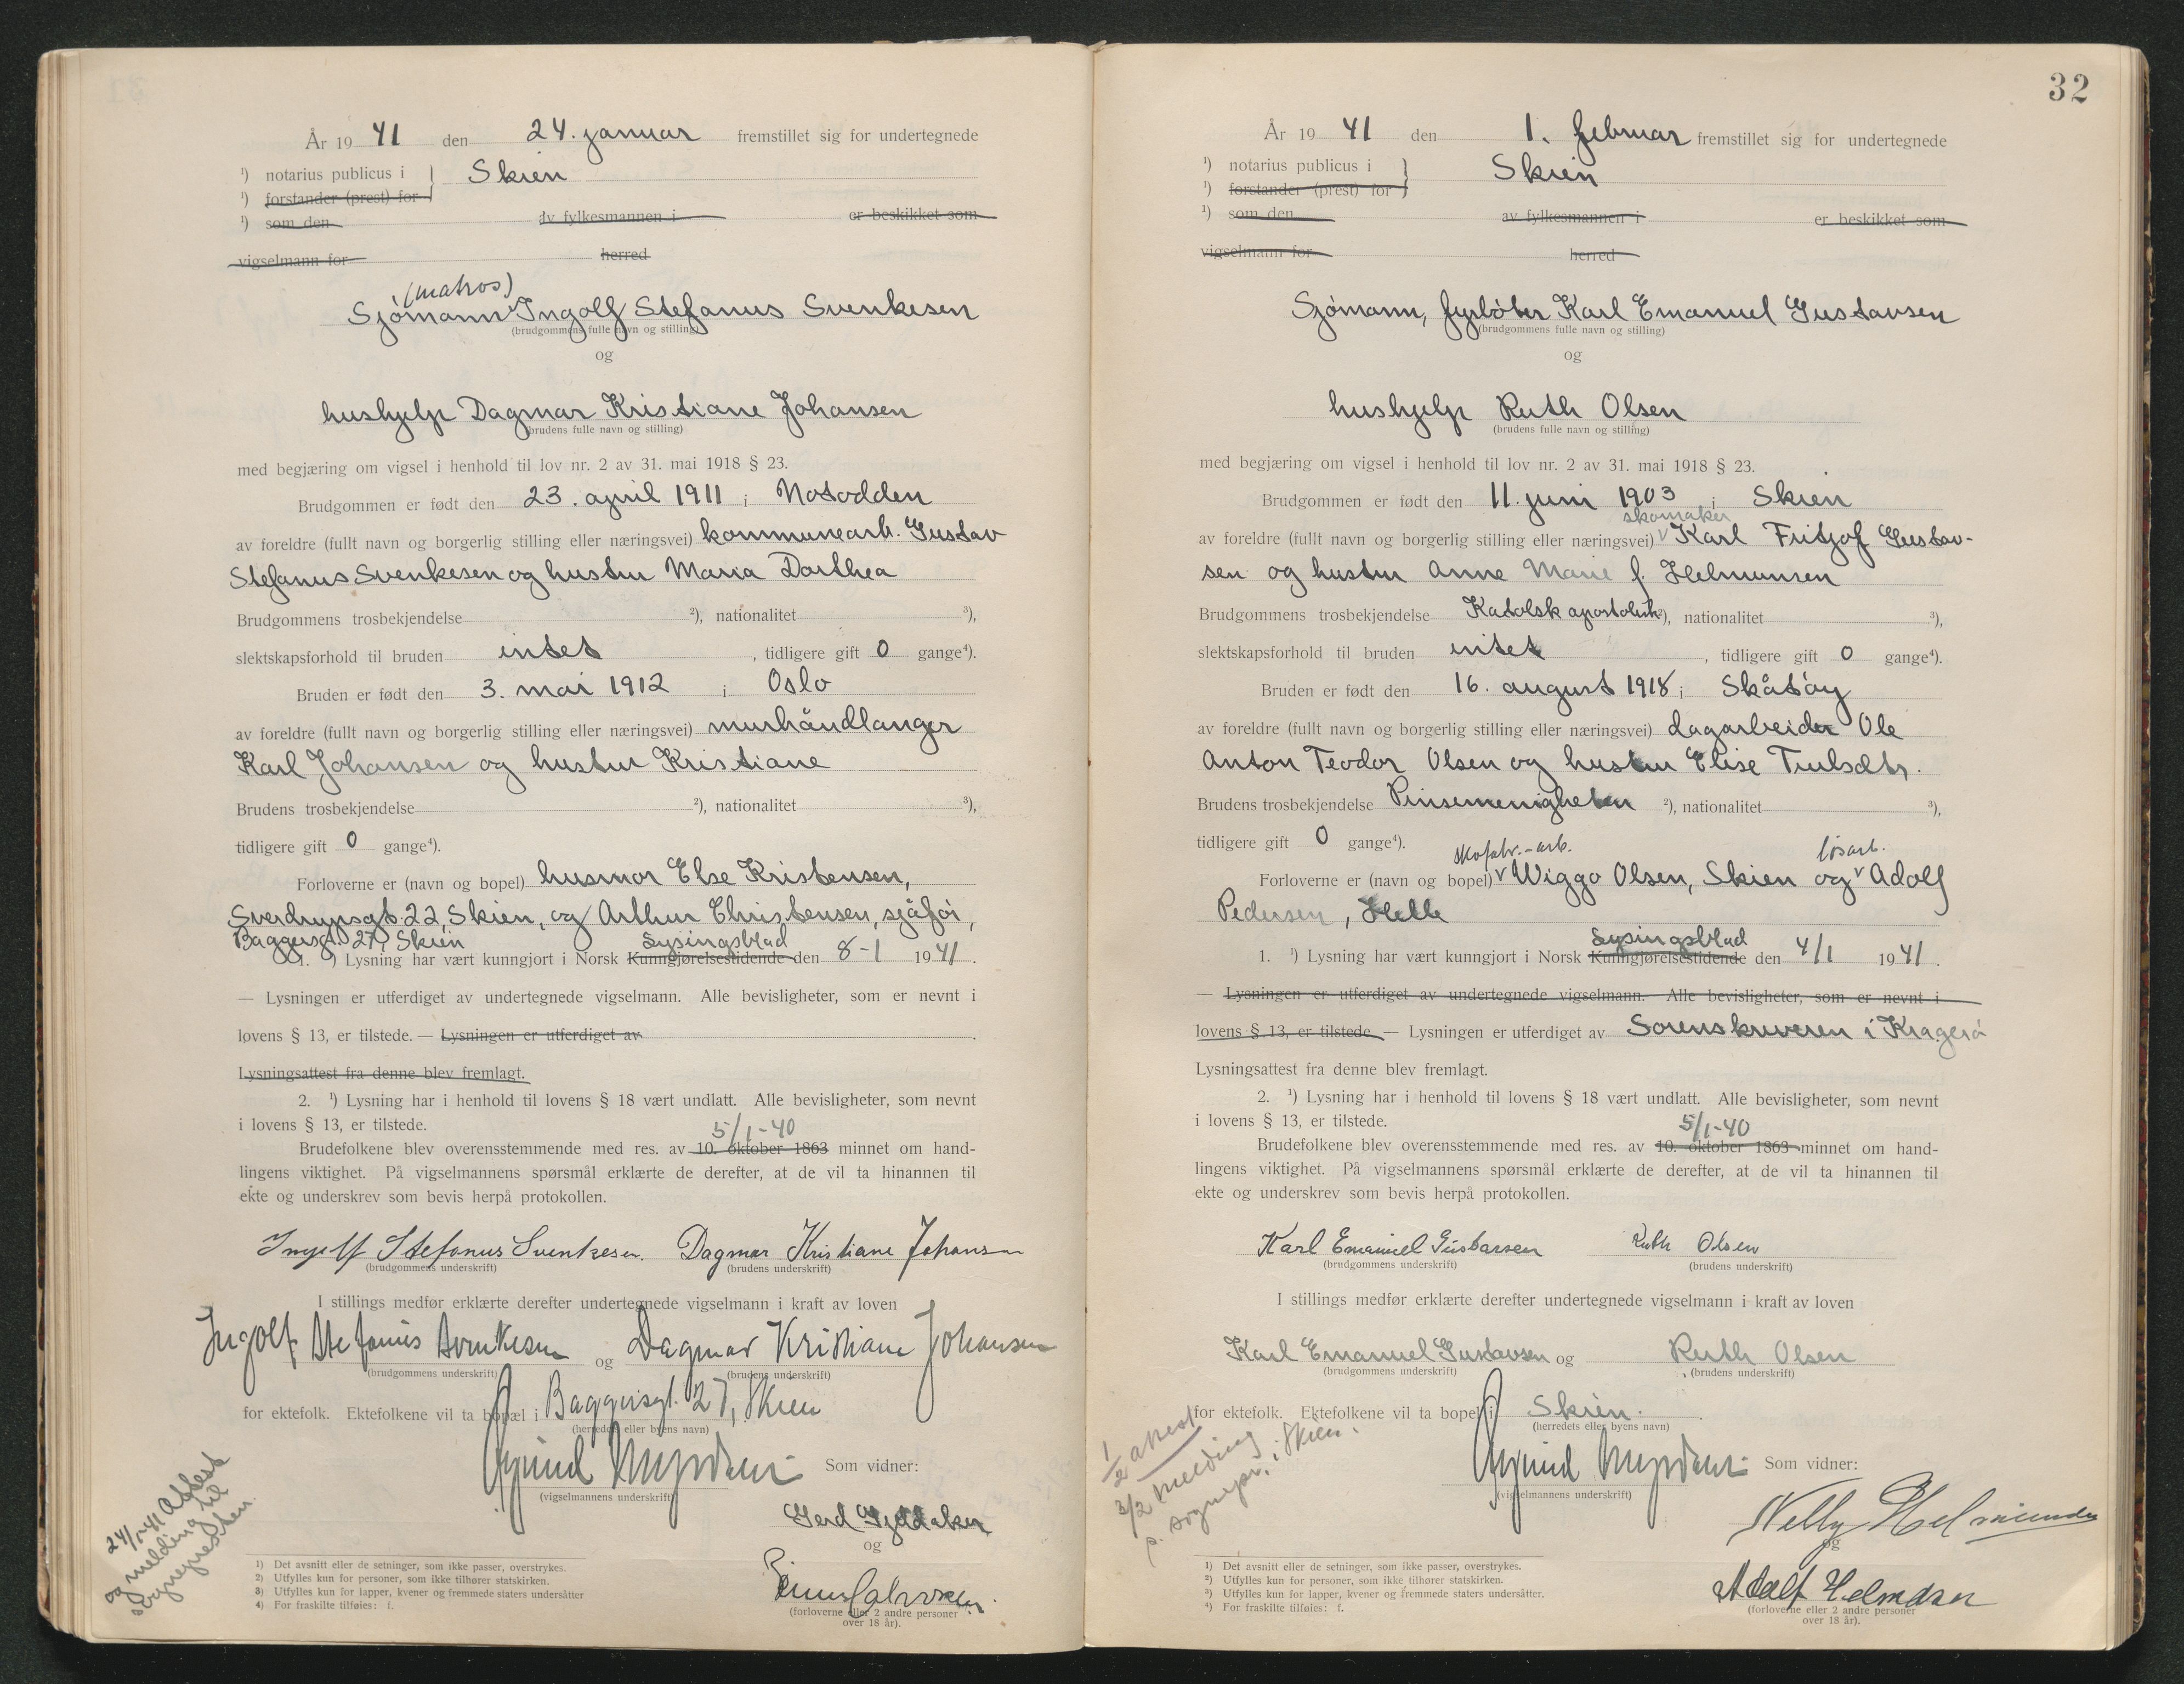 År 19 41 den 24. januar fremstillet sig for undertegnede
¹) notarius publicus i } Skien
¹) forstander (prest) for
¹) som den av fylkesmannen i er beskikket som
vigselmann for herred
(matros)
Sjømann Ingolf Stefanus Svenkesen
(brudgommens fulle navn og stilling)
og
hushjelp Dagmar Kristiane Johansen
(brudens fulle navn og stilling)
med begjæring om vigsel i henhold til lov nr. 2 av 31. mai 1918 § 23.
Brudgommen er født den 23. april 1911 i Notodden
av foreldre (fullt navn og borgerlig stilling eller næringsvei) kommunearb. Gustav
Stefanus Svenkesen og hustru Maria Dorthea
Brudgommens trosbekjendelse ²), nationalitet ³),
slektskapsforhold til bruden intet , tidligere gift 0 gange⁴).
Bruden er født den 3. mai 1912 i Oslo
av foreldre (fullt navn og borgerlig stilling eller næringsvei) murhåndlanger
Karl Johansen og hustru Kristiane
Brudens trosbekjendelse ²), nationalitet ³),
tidligere gift 0 gange⁴).
Forloverne er (navn og bopel) husmor Else Kristensen,
Sverdrupsgt. 22, Skien, og Arthur Christensen, sjåfør,
Baggersgt. 27, Skien
Lysingsblad
1. ¹) Lysning har vært kunngjort i Norsk Kunngjørelsestidende den 8-1 1941.
— Lysningen er utferdiget av undertegnede vigselmann. Alle bevisligheter, som er nevnt i
lovens § 13, er tilstede. — Lysningen er utferdiget av
Lysningsattest fra denne blev fremlagt.
2. ¹) Lysning har i henhold til lovens § 18 vært undlatt. Alle bevisligheter, som nevnt
i lovens § 13, er tilstede.
5/1-40
Brudefolkene blev overensstemmende med res. av 10. oktober 1863 minnet om hand-
lingens viktighet. På vigselmannens spørsmål erklærte de derefter, at de vil ta hinannen til
ekte og underskrev som bevis herpå protokollen.
Ingolf Stefanus Svenkesen. Dagmar Kristiane Johansen
(brudgommens underskrift) (brudens underskrift)
I stillings medfør erklærte derefter undertegnede vigselmann i kraft av loven
Ingolf Stefanus Svenkesen og Dagmar Kristiane Johansen
(brudgommens underskrift) (brudens underskrift)
for ektefolk. Ektefolkene vil ta bopæl i Baggersgt. 27, Skien
(herredets eller byens navn)
Som vidner:
(vigselmannens underskrift)
Gerd
og
(forloverne eller 2 andre personer
over 18 år).
24/1-41 Attest
og melding til
sognepresten.
1) Det avsnitt eller de setninger, som ikke passer, overstrykes.
2) Utfylles kun for personer, som ikke tilhører statskirken.
3) Utfylles kun for lapper, kvener og fremmede staters undersåtter
4) For fraskilte tilføies: f.
32
År 19 41 den 1. februar fremstillet sig for undertegnede
¹) notarius publicus i } Skien
¹) forstander (prest) for
¹) som den av fylkesmannen i er beskikket som
vigselmann for herred
Sjømann, fyrbøter Karl Emanuel Gustavsen
(brudgommens fulle navn og stilling)
og
hushjelp Ruth Olsen
(brudens fulle navn og stilling)
med begjæring om vigsel i henhold til lov nr. 2 av 31. mai 1918 § 23.
Brudgommen er født den 11. juni 1903 i Skien
skomaker
av foreldre (fullt navn og borgerlig stilling eller næringsvei) v Karl Fritjof Gustav-
sen og hustru Anne Marie f. Helmunsen
Brudgommens trosbekjendelse Katolsk apostolisk ²), nationalitet ³),
slektskapsforhold til bruden intet , tidligere gift 0 gange⁴).
Bruden er født den 16. august 1918 i Skåtøy
av foreldre (fullt navn og borgerlig stilling eller næringsvei) dagarbeider Ole
Anton Teodor Olsen og hustru Elise Trulsdtr.
Brudens trosbekjendelse Pinsemenigheten ²), nationalitet ³),
tidligere gift 0 gange⁴).
skofabr.-arb. løsarb.
Forloverne er (navn og bopel) v Wiggo Olsen, Skien og v Adolf
Pedersen, Helle
Lysingsblad
1. ¹) Lysning har vært kunngjort i Norsk Kunngjørelsestidende den 4/1 1941.
— Lysningen er utferdiget av undertegnede vigselmann. Alle bevisligheter, som er nevnt i
lovens § 13, er tilstede — Lysningen er utferdiget av Sorenskriveren i Kragerø
Lysningsattest fra denne blev fremlagt.
2. ¹) Lysning har i henhold til lovens § 18 vært undlatt. Alle bevisligheter, som nevnt
i lovens § 13, er tilstede.
5/1-40
Brudefolkene blev overensstemmende med res. av 10. oktober 1863 minnet om hand-
lingens viktighet. På vigselmannens spørsmål erklærte de derefter, at de vil ta hinannen til
ekte og underskrev som bevis herpå protokollen.
Karl Emanuel Gustavsen Ruth Olsen
(brudgommens underskrift) (brudens underskrift)
I stillings medfør erklærte derefter undertegnede vigselmann i kraft av loven
Karl Emanuel Gustavsen og Ruth Olsen
(brudgommens underskrift) (brudens underskrift)
for ektefolk. Ektefolkene vil ta bopel i Skien.
(herredets eller byens navn)
Som vidner:
(vigselmannens underskrift)
Nelly
og
Adolf
(forloverne eller 2 andre personer
over 18 år).
1/2 attest
3/2 melding
p. sognepr. i Skien.
1) Det avsnitt eller de setninger, som ikke passer, overstrykes.
2) Utfylles kun for personer, som ikke tilhører statskirken.
3) Utfylles kun for lapper, kvener og fremmede staters undersåtter.
4) For fraskilte tilføies: f.